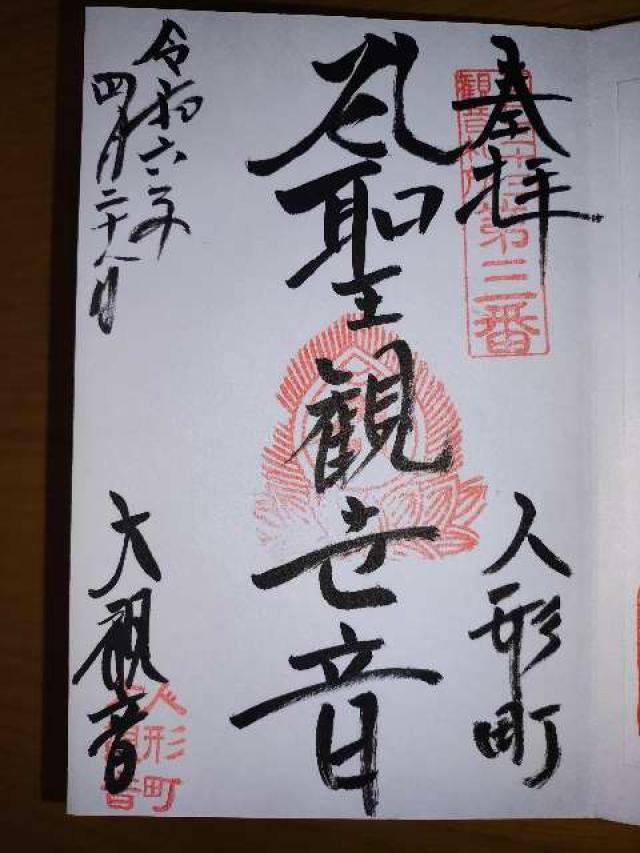 奉拝
人形町
聖観世音
令和六年
四月二十八日
大観音
第三番
人形町
大観音